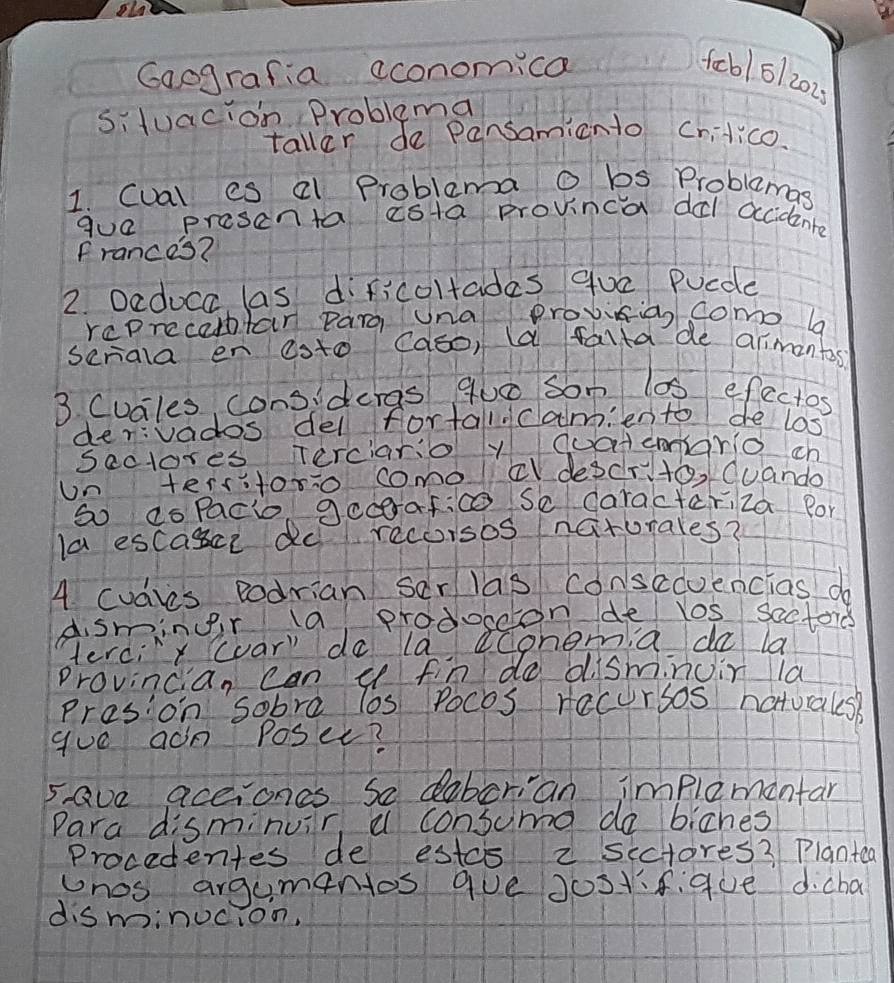 Geografia economica feb/5/2025
situación Problema
taller de Pensamiento critico.
1. Cual es el Problema o los Problemas
que presenta esta provincia del occidente
frances?
2. Deduce las dificoltades que puede
para una como la
señala en esto caso, la falta de alimentos.
3. Cuáles consideras que son los efectos
derivados del fortalicamiento de los
sectores Terciario y en
un territorio como el descrito, cuando
so espacio se caracteriza por
la escasez de recorsos naturales?
4 cuáles podrian ser las consecuencias de
disminuir la de los sectores
"terci" y "cuar" de la economia de la
provincia, con el fin de disminuir la
presión sobre los pocos recursos naturales
que aún Posee?
5-Que acciones se deberían implementar
Para disminuir el consumo de bienes
Procedentes de estos 2 sectores? Plantea
unos argumentos que Justifique dicha
disminucion.